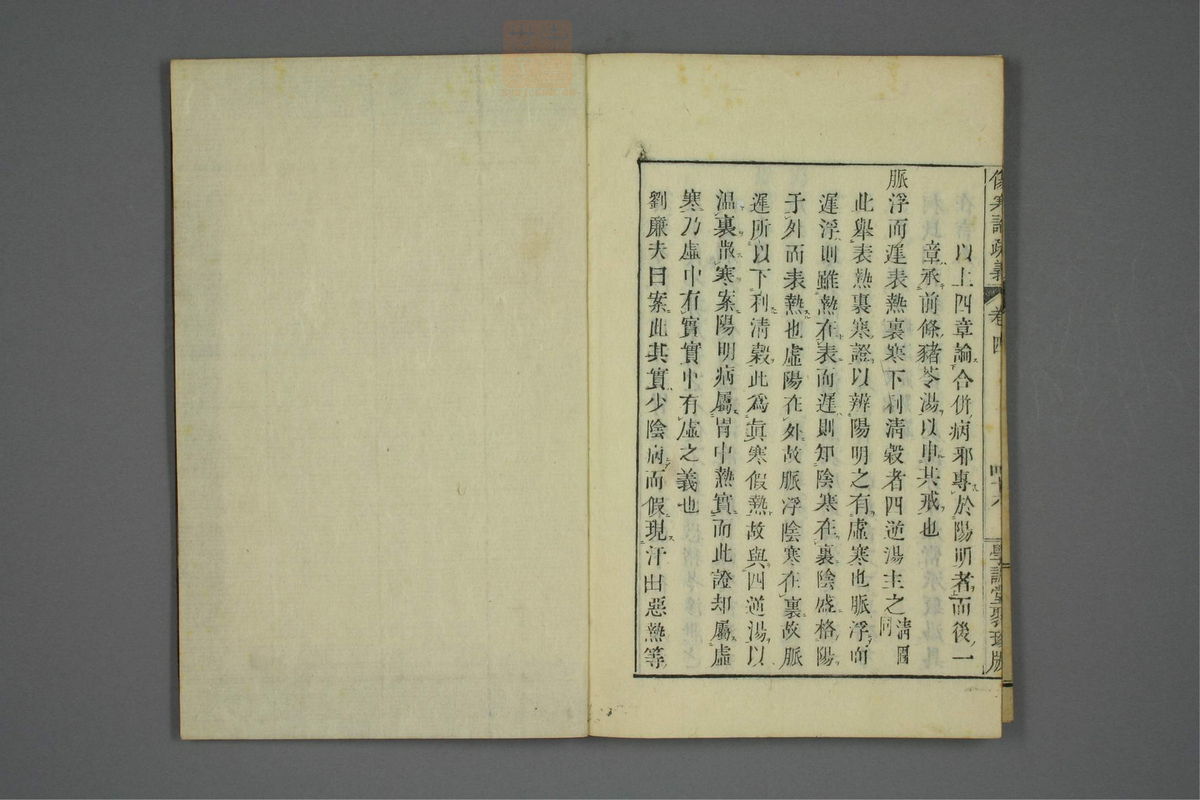 傷寒論疏義 卷四 四十八 學訓堂聚珍版
以上四章論合併病邪專於陽明者而後一
章承前條豬苓湯以申其戒也
脈浮而遲表熱裏寒下利清穀者四逆湯主之清圊同
此舉表熱裏寒證以辨陽明之有虛寒也脈浮而
遲浮則雖熱在表而遲則知陰寒在裏陰盛格陽
于外而表熱也虛陽在外故脈浮陰寒在裏故脈
遲所以下利清穀此為眞寒假熱故與四逆湯以
溫裏散寒案陽明病屬胃中熱實而此證却屬虛
寒乃虛中有實實中有虛之義也
劉廉夫曰案此其實少陰病而假現汗出惡熱等